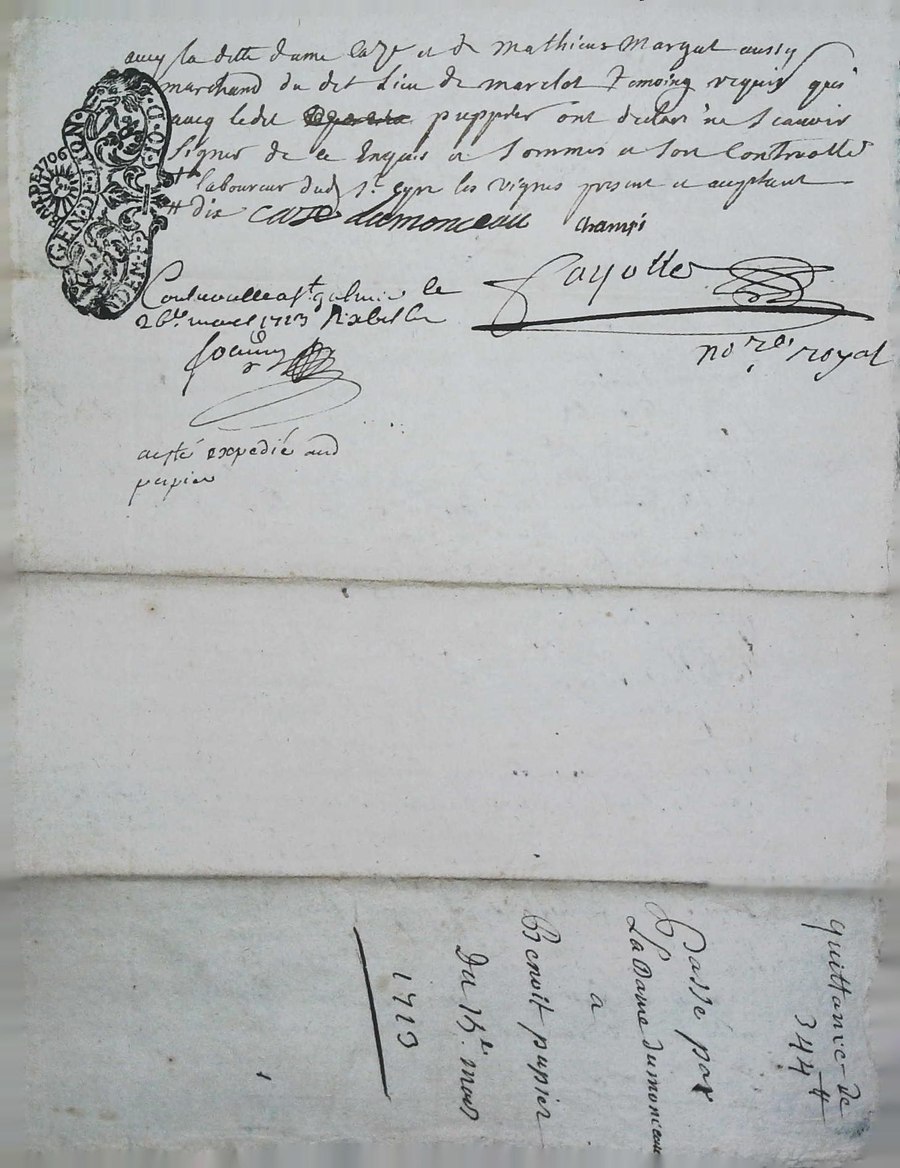 avecq la ditte dame caze et de mathieu Margut aussy
marchand du dit lieu de marclot temoing requis qui
avecq ledit puppier ont declaré ne scavoir
signer de ce enquis et sommés a son controlle
laboureur dud St Cypr les vignes present et acceptant
# dix caze dumonceau champs
payolle
no.re royal
Controulle a st galmier le
26e. mars 1713 R
acte expedié aud
pupier
quittance de
344 #
Passé par
La Dame dumonceau
a
Benoit pupier
Du 15.e mars
1713
GEN·DE·LYON